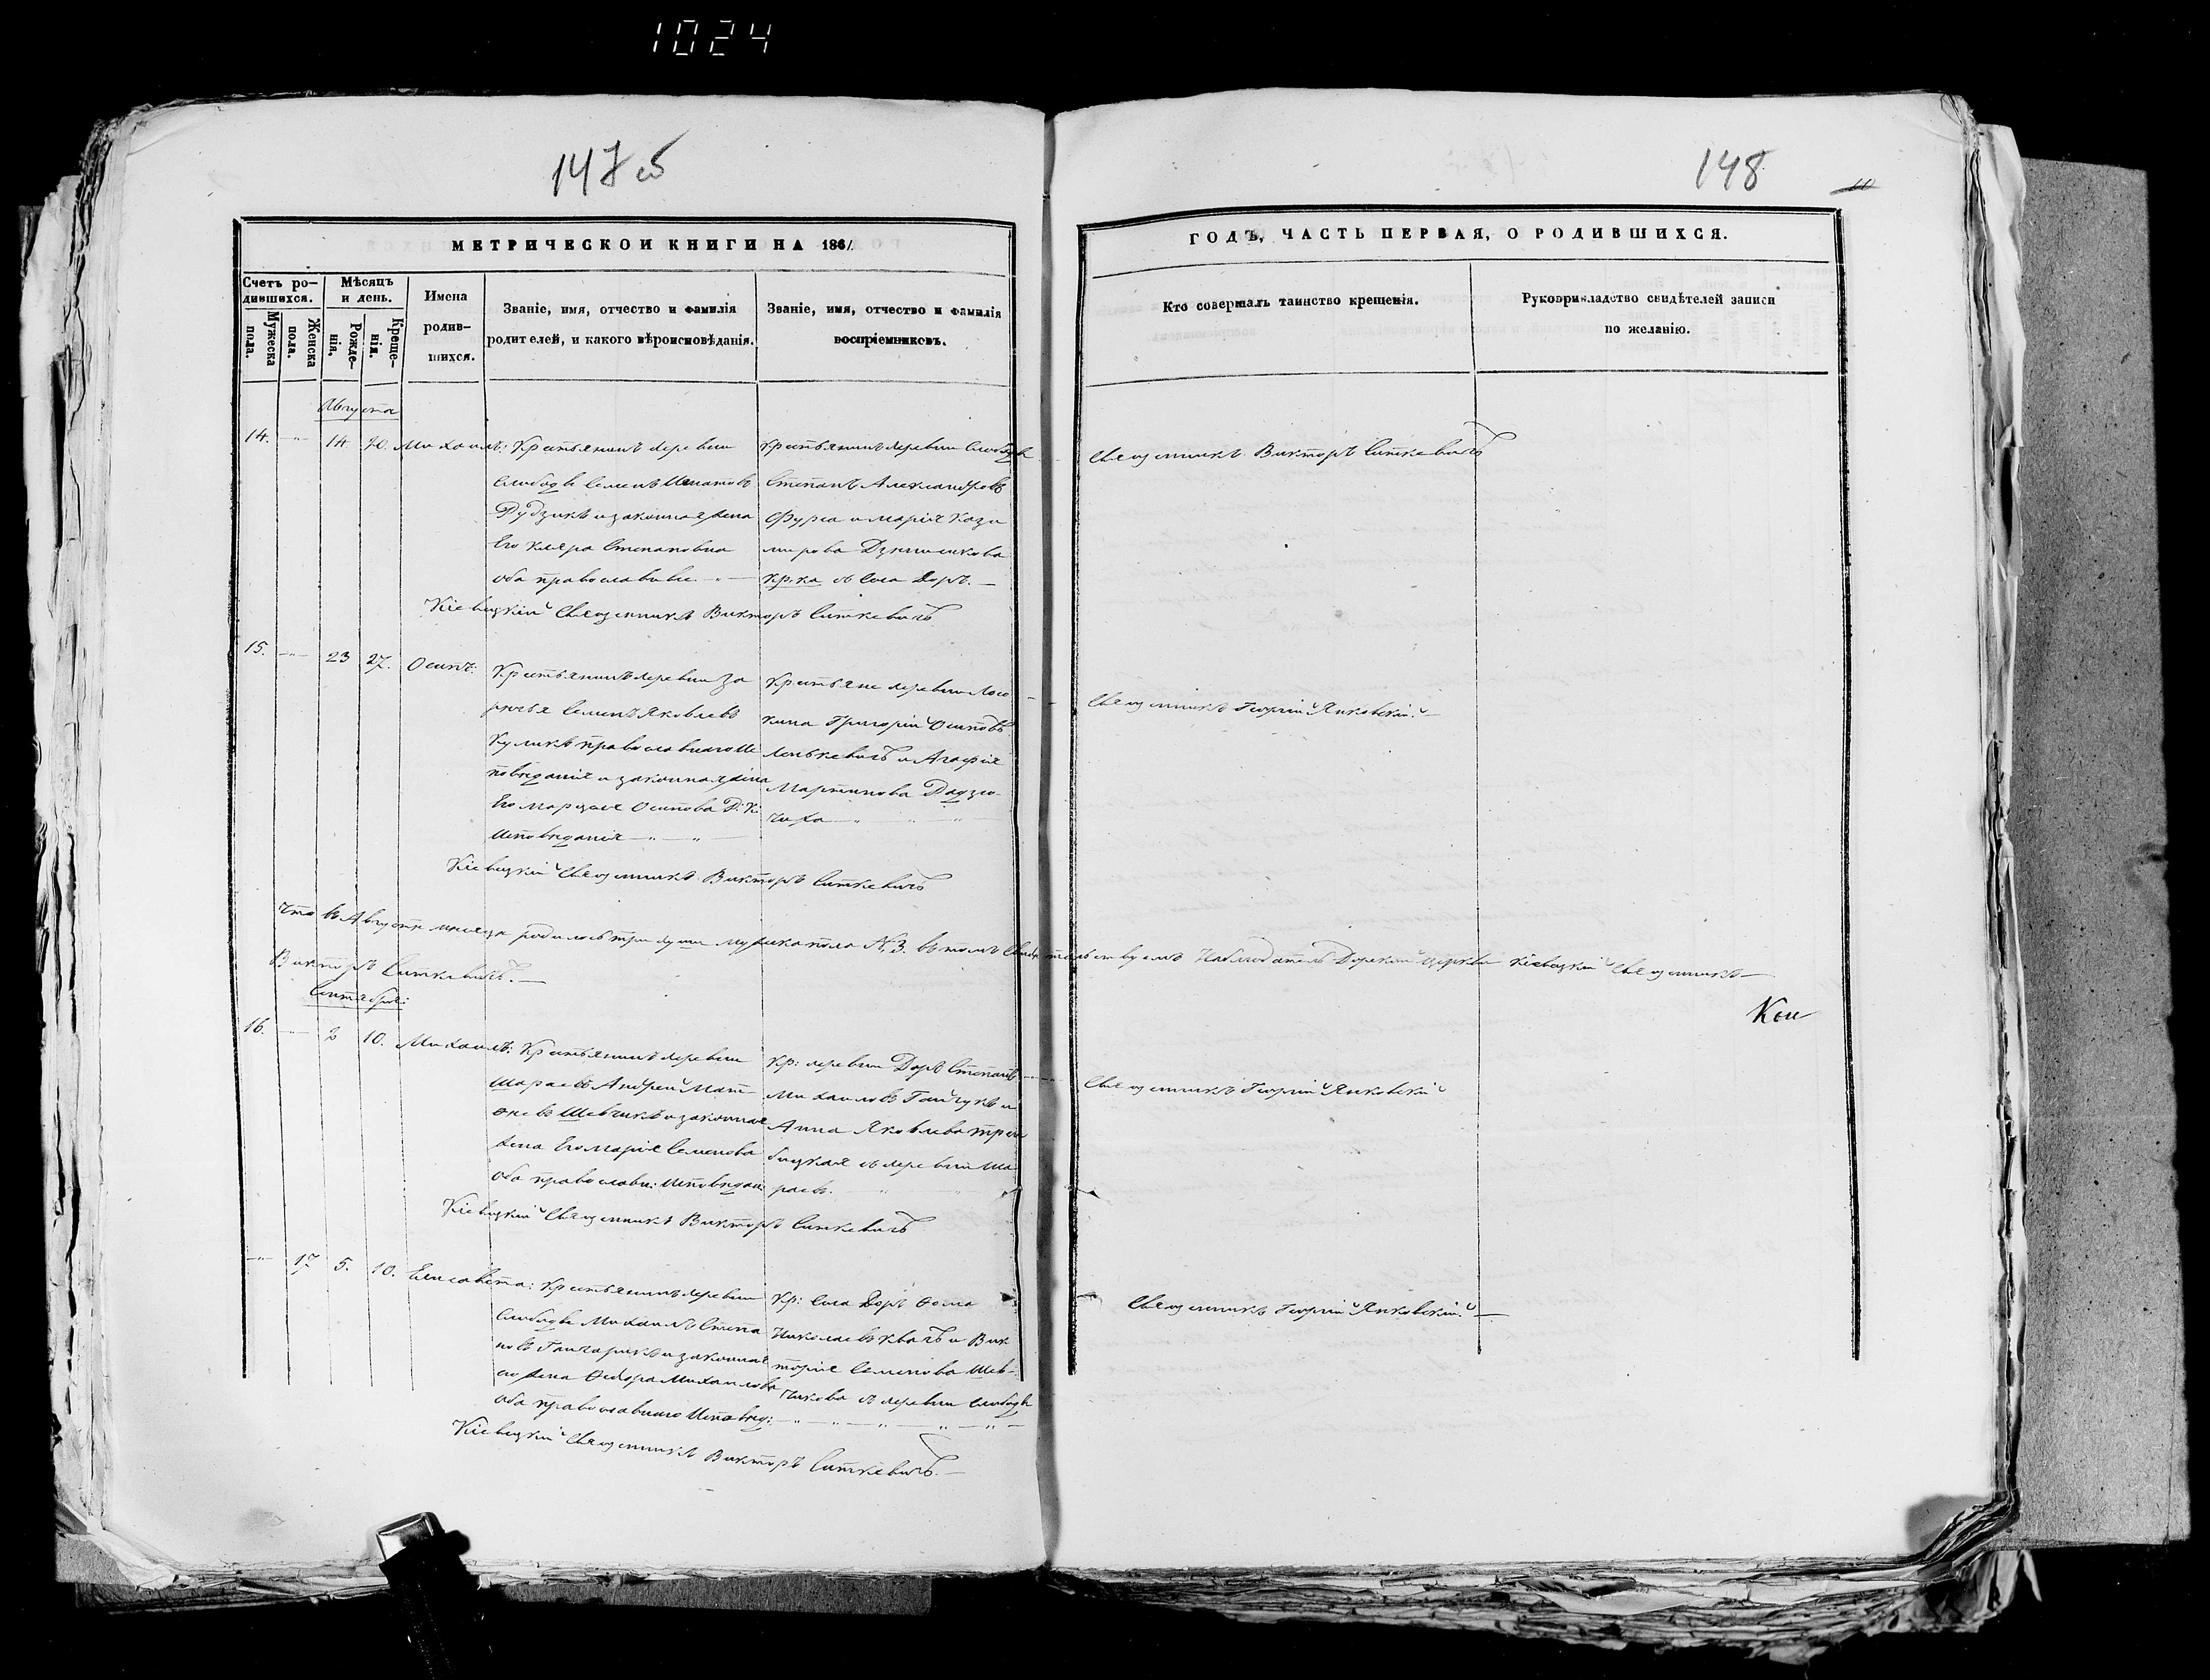 1024
147 об
148
МЕТРИЧЕСКОЙ КНИГИ НА 1861
ГОДЪ, ЧАСТЬ ПЕРВАЯ, О РОДИВШИХСЯ.
Счетъ ро-
дившихся.
Мужеска пола.
Женска пола.
Мѣсяцъ
и день.
Рожде-
нія.
Креще-
нія.
Имена
родив-
шихся.
Званіе, имя, отчество и фамилія
родителей, и какого вѣроисповѣданія.
Званіе, имя, отчество и фамилія
воспріемниковъ.
Кто совершалъ таинство крещенія.
Рукоприкладство свидѣтелей записи
по желанію.
Августа
14. 14 20. Михаилъ:
Крестьянинъ деревни
Слободы Семенъ Игнатовъ
Рудзикъ и законная жена
Его Клара Степановна
оба православные.
Крестьянинъ деревни Слободы
Степанъ Александровъ
Фурса и Марія Кази
мирова
кр.ка съ Села Доръ.
Священникъ Викторъ Ситкевичъ
Кіевецкій Священникъ Викторъ Ситкевичъ
15. 23 27. Осипъ:
Крестьянинъ деревни За
рѣчья Семенъ Яковлевъ
Куликъ православнаго Ис
повѣданія и законная жена
Его Марцеля Осипова Р: К:
Исповѣданія
Крестьяне деревни Лосо
кина Григорій Осиповъ
Ленькевичъ и Агафія
Мартинова Дадзю
чиха
Священникъ Георгій Янковскій.
Кіевецкій Священникъ Викторъ Ситкевичъ
Что въ Августѣ мѣсяцѣ родилось три души мужеска пола N 3. въ томъ Свидѣтельствуетъ Наблюдатель Дорской церкви Кіевецкій Священникъ
Викторъ Ситкевичъ.
Сентября:
16. 2 10. Михаилъ:
Крестьянинъ деревни
Шараевъ Андрей Мат
ѳеевъ Шевчикъ и законная
жена Его Марія Семенова
оба православн: Исповѣдан:
Кр: деревни Доръ Степанъ
Михаиловъ Гайчукъ и
Анна Яковлева Трем
бицкая съ деревни Ша
раевъ.
Священникъ Георгій Янковскій
Кіевецкій Священникъ Викторъ Ситкевичъ
17 5. 10. Елисавета:
Крестьянинъ деревни
Слободы Михаилъ Степа
новъ Ганчарикъ и законная
его жена Ѳедора Михаилова
оба православнаго Исповѣд:
Кр: Села Доръ Ѳома
Николаевъ Квачъ и Вик
торія Семенова Шев-
чикова съ деревни Слободы
Священникъ Георгій Янковскій.
Кіевецкій Священникъ Викторъ Ситкевичъ.